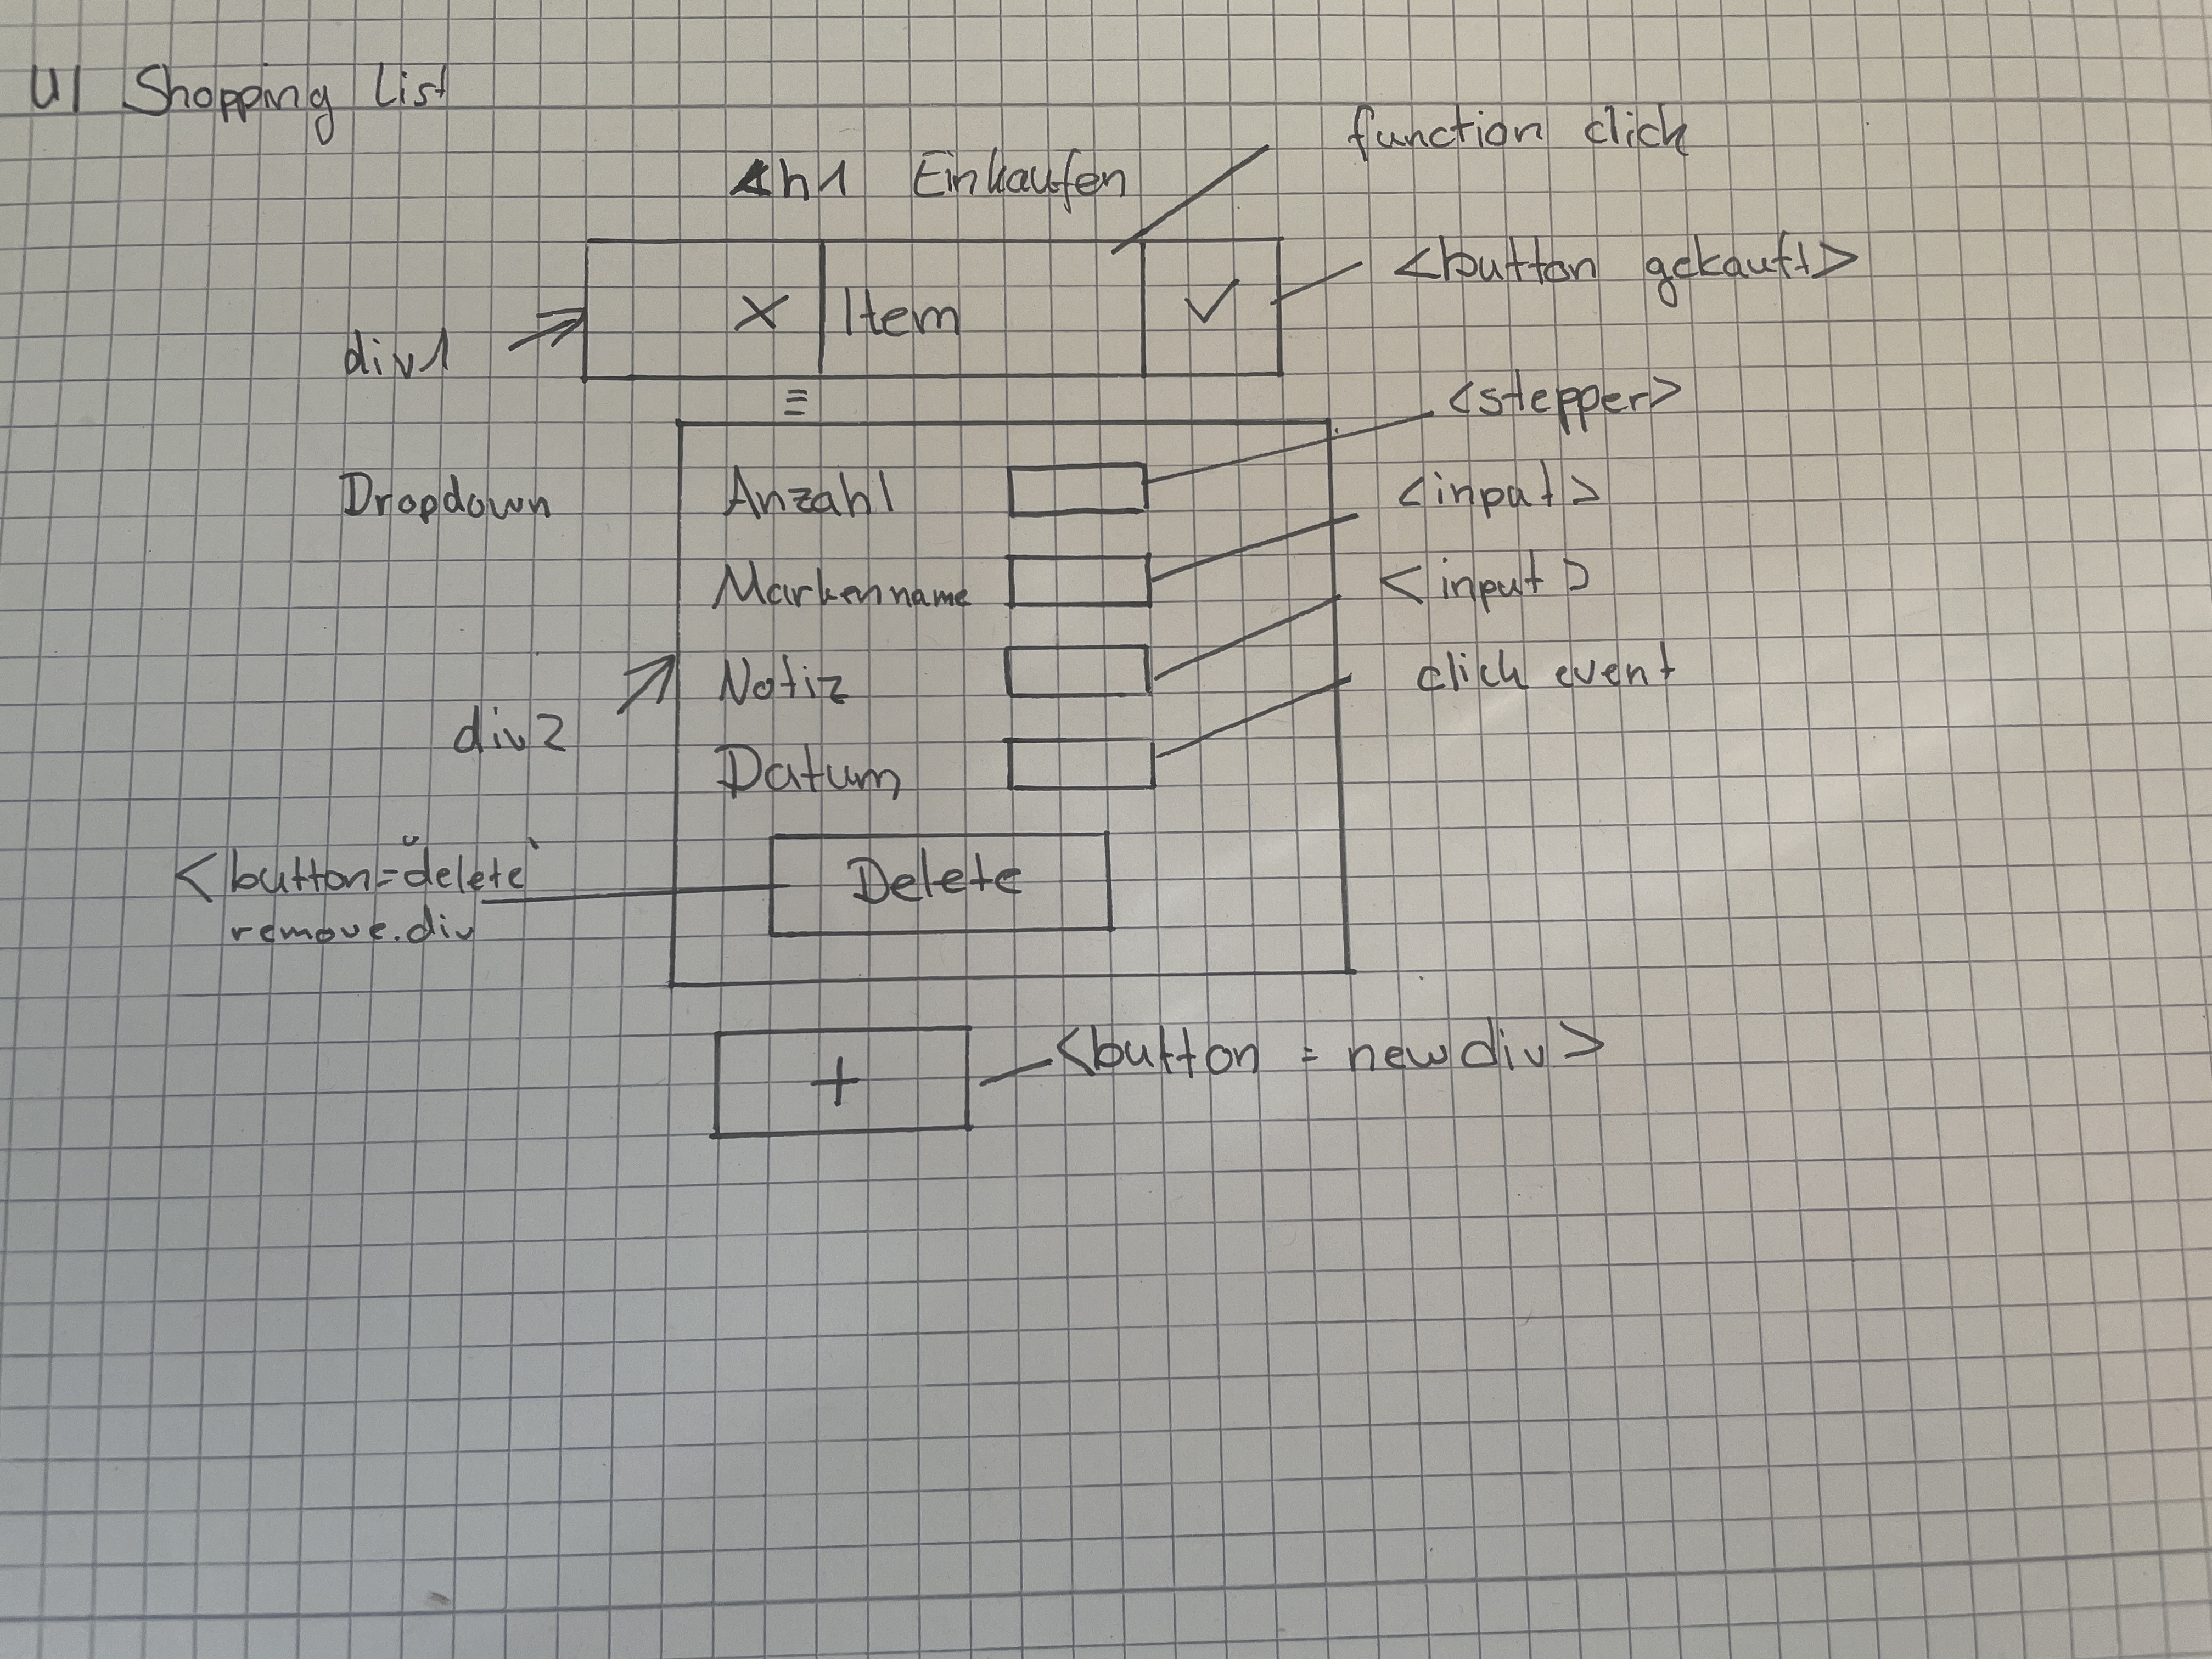 UI Shopping List
function click
h1 Einkaufen
<button gekauft>
x Item ✓
div1
<stepper>
Dropdown
Anzahl
<input>
Markenname
<input>
Notiz
click event
div2
Datum
<button="delete"
remove.div
Delete
+
<button = new div>